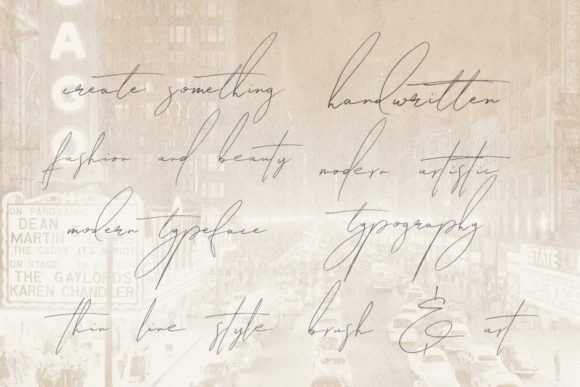 CAGO
create something handwritten
fashion and beauty modern artistic
modern typeface typography
ON PANORAMIC
DEAN
MARTIN
THE CADDY
ON STAGE
THE GAYLORDS
KAREN CHANDLER
STATE
thin line style brush & art